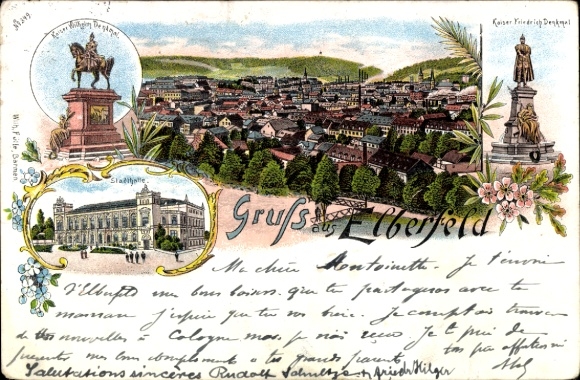 No 349.
Kaiser Wilhelm Denkmal
Kaiser Friedrich Denkmal
Wilh. Fülle, Barmen
Stadthalle.
Gruss aus Elberfeld
Ma chère Je t'envoie
d'Elberfeld bons baisers que tu partageras avec ta
maman j'espère que tu vas bien. Je comptais trouver
de tes nouvelles à Cologne mais je n'ai reçu Je te prie de
présenter mes bons compliments à tes grands parents
Salutations sincères Rudolf